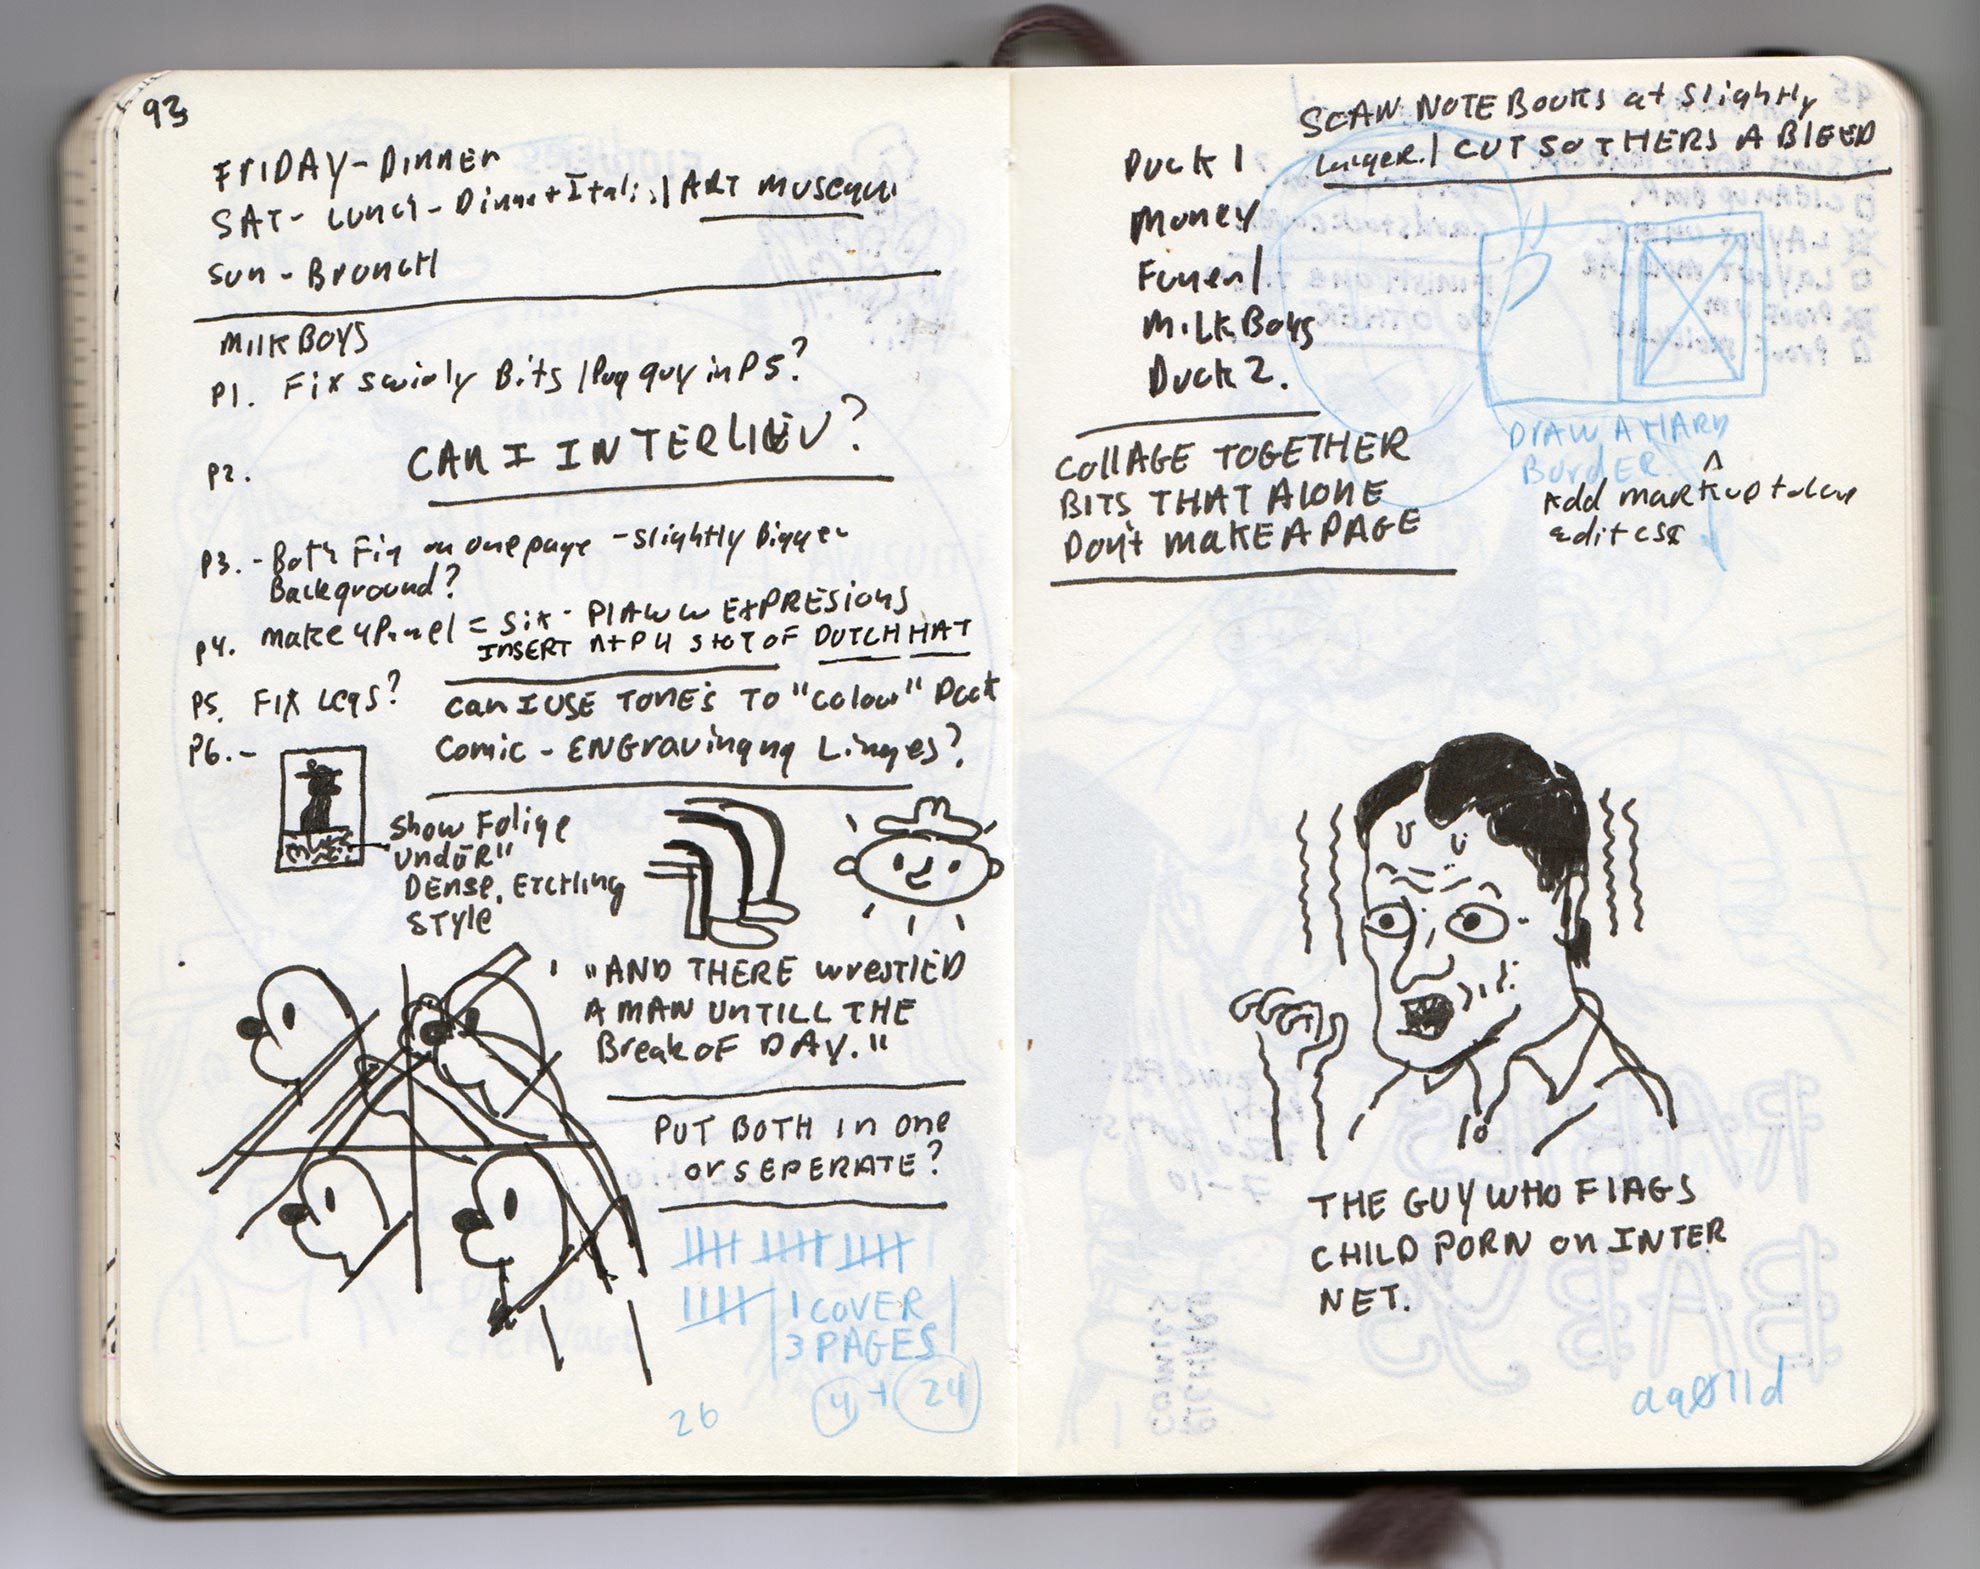 93
FRIDAY - DINNER
SAT - LUNCH - Dinner + Itali. | ART MUSEQUM
SUN - BrunCH
MILK BOYS
P1. Fix swirly Bits / Pug guy in P5?
P2. CAN I INTERLIEU?
P3. - Both Fig on one page - slightly Bigger
Background?
P4. make 4 Panel = six - PLAY W EXPRESIONS
INSERT AT P4 SHOT OF DUTCH HAT
P5. FIX LEGS? can I USE TONE'S TO "Colour" Duck
P6. - Comic - ENGravingng Lingyes?
show Folige
under"
DENSE, ETCHING
STYLE
"AND THERE WrestlED
A MAN UNTILL THE
Break OF DAY."
PUT BOTH in one
or SEPERATE?
1 COVER
3 PAGES
4 + 24
26
SCAN NOTEBOOKS at slightly
larger. / CUT SO THERS A BLEED
Duck 1
Money
Funeral
MILK Boys
Duck 2.
DRAW A HARD
BorDER.
Add markup to
edit css
COllAGE TOGETHER
BITS THAT ALONE
Don't makE A PAGE
THE GUY WHO FLAGS
CHILD PORN on INTER
NET.